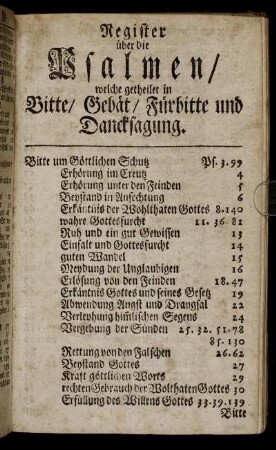 Register
über die
Psalmen/
welche getheilet in
Bitte/ Gebät/ Fürbitte und
Dancksagung.
Bitte um Göttlichen Schutz Ps. 3. 99
Erhörung im Creutz 4
Erhörung unter den Feinden 5
Beystand in Anfechtung 6
Erkäntnis der Wohlthaten Gottes 8. 140
wahre Gottesfurcht 11. 36. 81
Ruh und ein gut Gewissen 13
Einfalt und Gottesfurcht 14
guten Wandel 15
Meydung der Unglaubigen 16
Erlösung von den Feinden 18. 47
Erkäntnis Gottes und seines Gesetz 19
Abwendung Angst und Drangsal 22
Verleyhung himlischen Segens 24
Vergebung der Sünden 25. 32. 51. 78
85. 130
Rettung von den Falschen 26. 62
Beystand Gottes 27
Krafft göttlichen Worts 29
rechten Gebrauch der Wolthaten Gottes 30
Erfüllung des Willens Gottes 33. 39. 139
Bitte